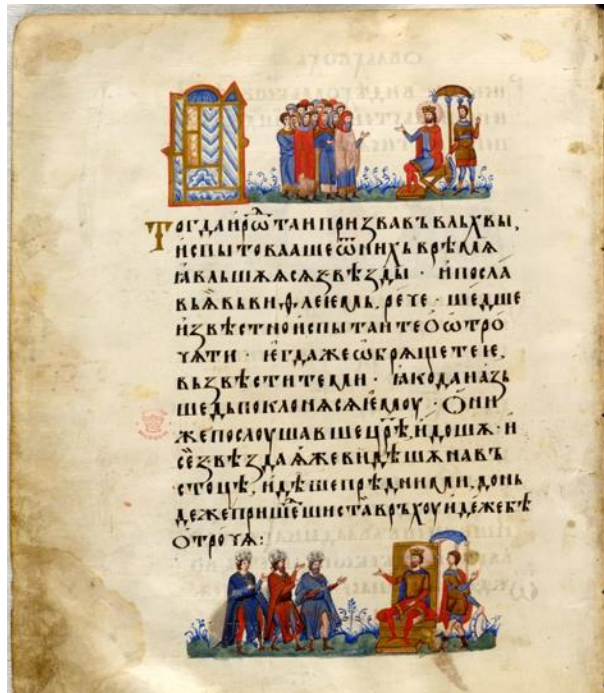 Тогда ирѡ҃ таи призвавъ влъхвы,
испытоваашеѿнихъврѣмѧ
ꙗвльшѫѧсѧзвѣзды · ипосла
вьѧ҆вьвиѳлеіемь, рече · шедше
извѣстноиспытаитеоѡтро
чѧти · егдажеѡбрѧщетеіе,
възвѣстителми · ꙗкоданазь
шедьпоклонѧсѧіемоу · Они
жепослоушавшецр҃ѣ, идошѧ · и
се҆звѣздаѧ҆жевидѣшѧнавъ
стоцѣ, идѣшепрѣдними, донь
дежепришеⷣшиставръхоуидежебѣ
отрочѧ: